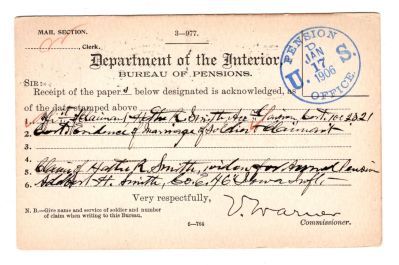 MAIL SECTION.
3—977.
Clerk.
Department of the Interior,
BUREAU OF PENSIONS.
PENSION OFFICE
U. S.
JAN 17 1906
SIR:
Receipt of the papers below designated is acknowledged, as
of the date stamped above.
1. Claimant Hattie R. Smith,
2. Evidence of marriage of Soldier & Claimant
3.
4.
5. Claim of Hattie R. Smith, widow for Pension
6. H. Smith, Co. C. 46" Iowa Inft.
Very respectfully,
V. Warner
N. B.—Give name and service of soldier and number
of claim when writing to this Bureau.
Commissioner.
6—704